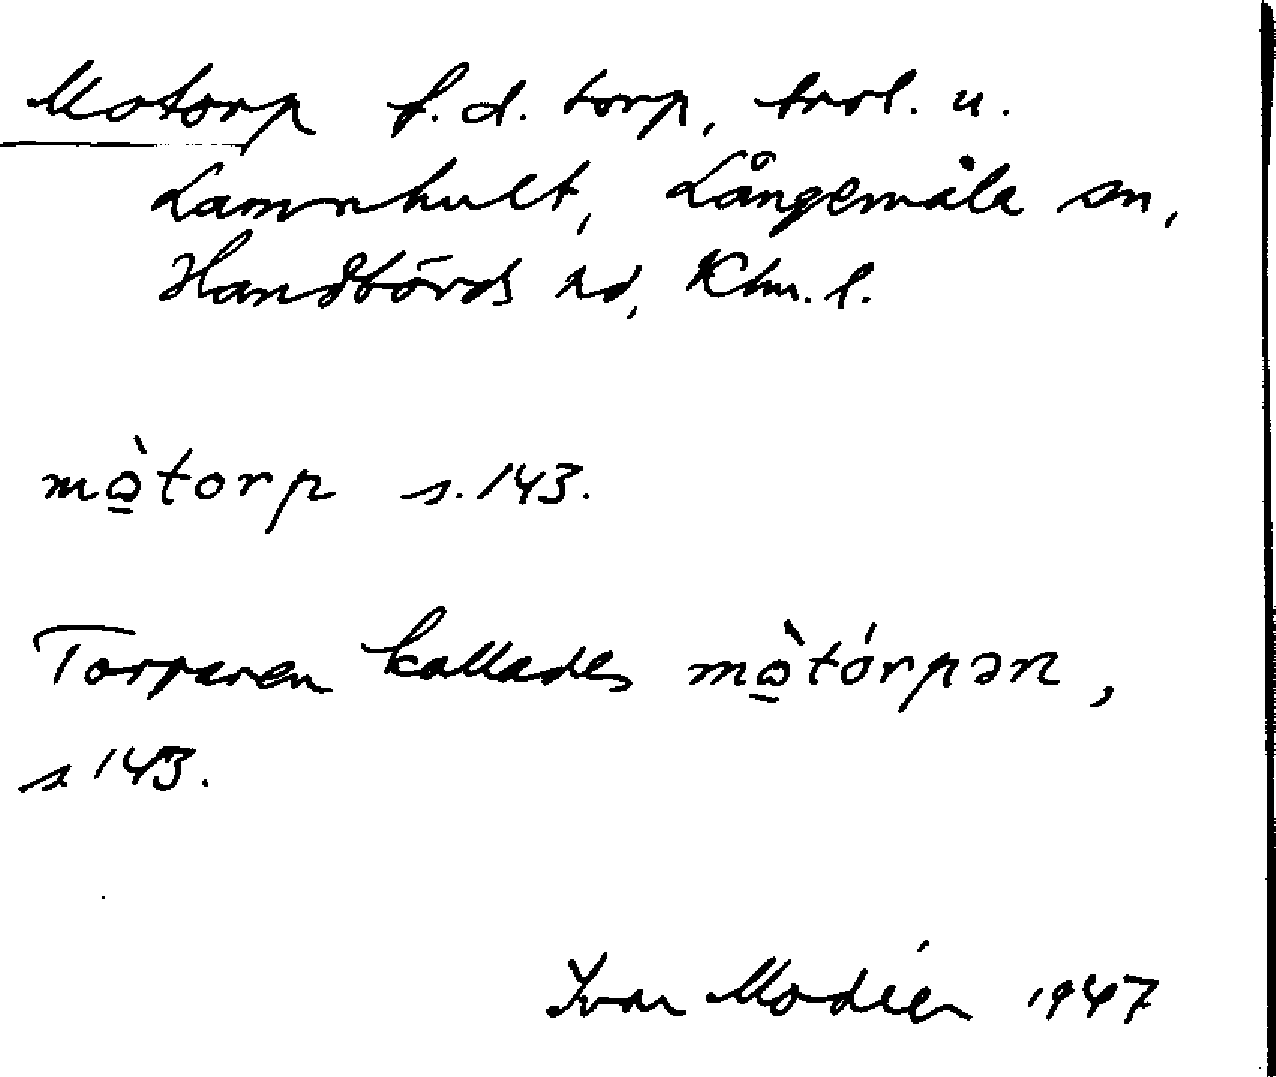 Motorp f.d. torp, trol. u.
Lammhult, Långemåla sn,
Handbörds hd, Klm.l.
mò̱torp s. 143.
Torparen kallades mò̱tórpən,
s 143.
Ivar Modéer 1947